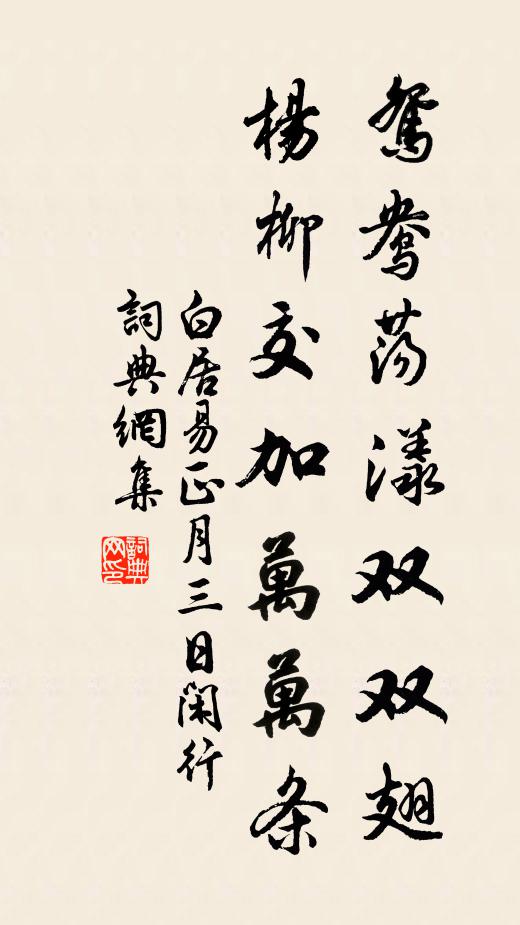 鴛鴦蕩漾双双翅
楊柳交加萬萬条
白居易正月三日閑行
詞典網集
詞典網印